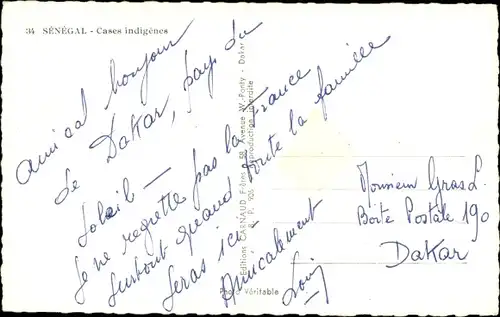 34 SÉNÉGAL - Cases indigènes
Amical bonjour
de Dakar, pays du
soleil —
Je ne regrette pas la France
surtout quand toute la famille
seras ici
Amicalement
Louis
Editions CARNAUD Frères 58, Avenue W.-Ponty - Dakar
Reproduction interdite
Photo Véritable
Monsieur Gras L.
Boite Postale 190
Dakar